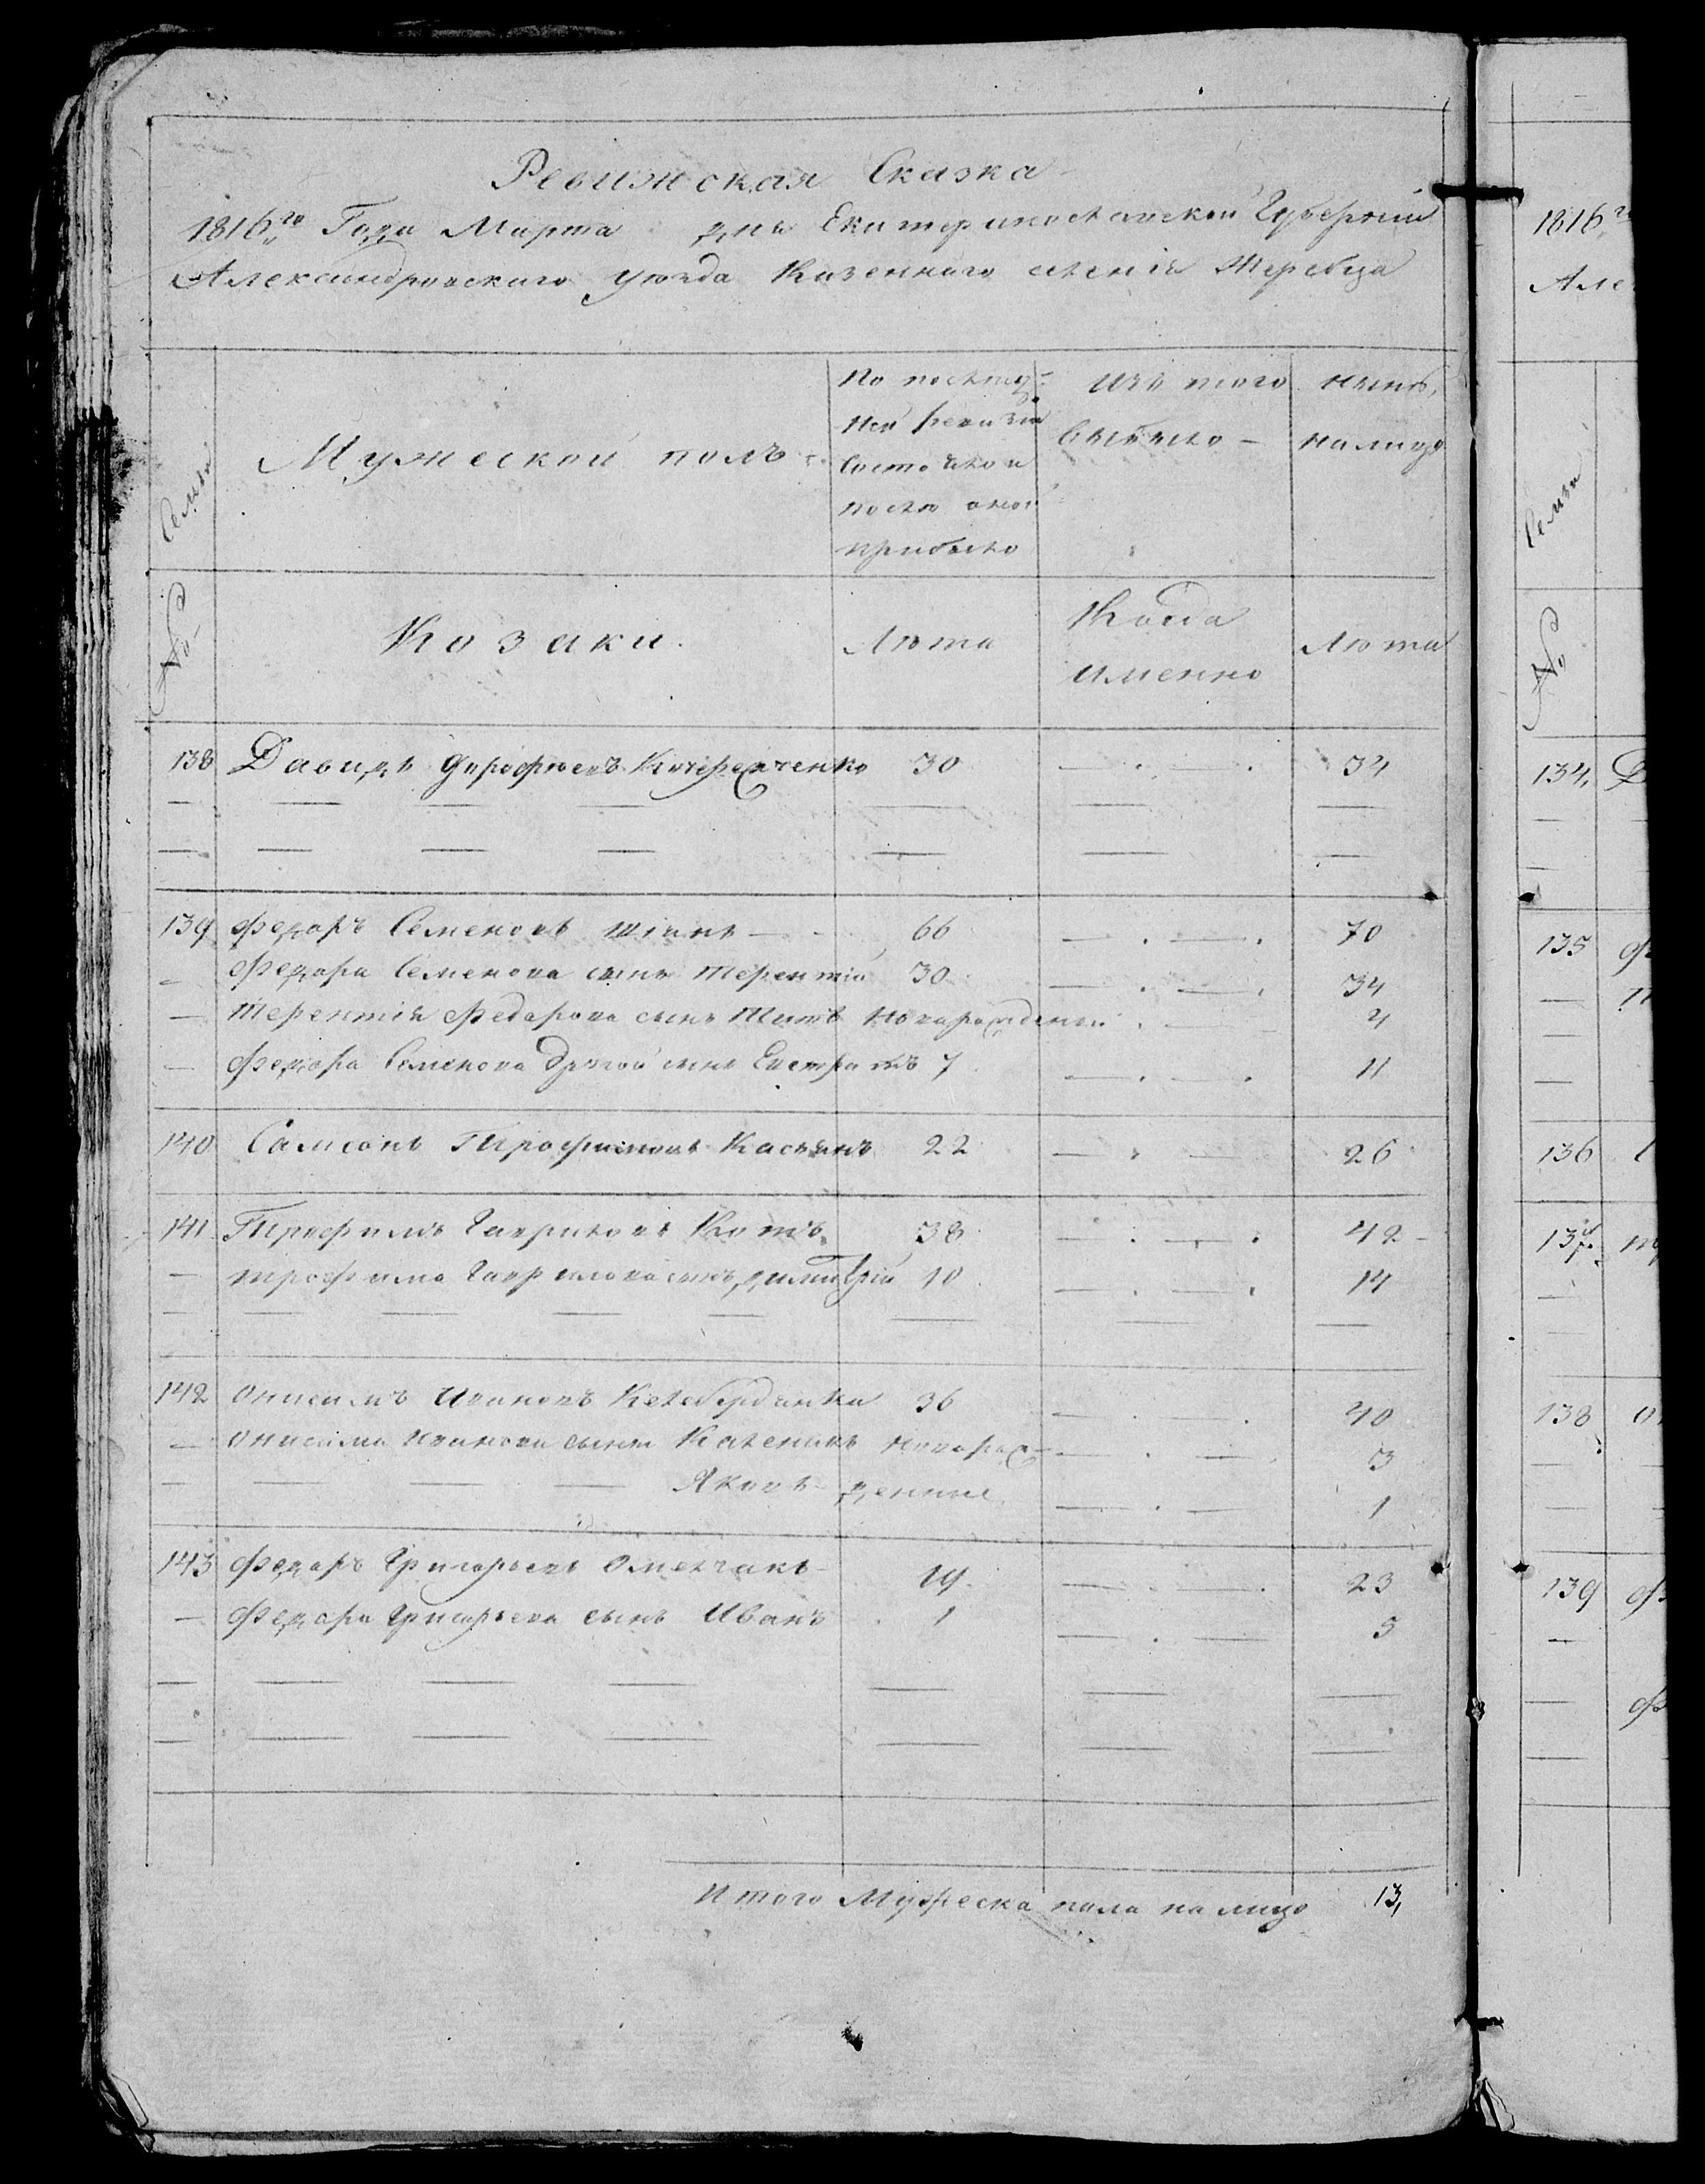 Ревижская Сказка
1816го Года Марта дня Екатеринославской Губернии
Александровского уезда Казенного селения Жеребца
Семьи
Мужеской полъ
По послед-
ней ревизии
состояло и
после оной
прибыло
Изъ того
выбыло
ныне
налицо
№
Козаки.
Лѣта
Когда
именно
Лѣта
138 Давидъ Дорофѣевъ 30 34
139 Федоръ Семеновъ 66 70
Федора Семенова сынъ Терентій 30 34
Терентія Федорова сынъ Титъ новорожденой 4
Федора Семенова другой сынъ Евстратъ 7 11
140 Самсонъ Трофимовъ Касьянъ 22 26
141 Трофимъ Гавриловъ Котъ 38 42
трофима Гаврилова сынъ димитрій 10 14
142 Онисимъ Ивановъ 36 40
Онисима Иванова сыны Каленикъ новорож- 3
Яковъ денные 1
143 Федоръ Григорьевъ Омельчакъ 19 23
Федора Григорьева сынъ Иванъ 1 5
Итого Мужеска пола на лицо 13
1816го
Але
Семьи
№
134
135
136
137
138
139